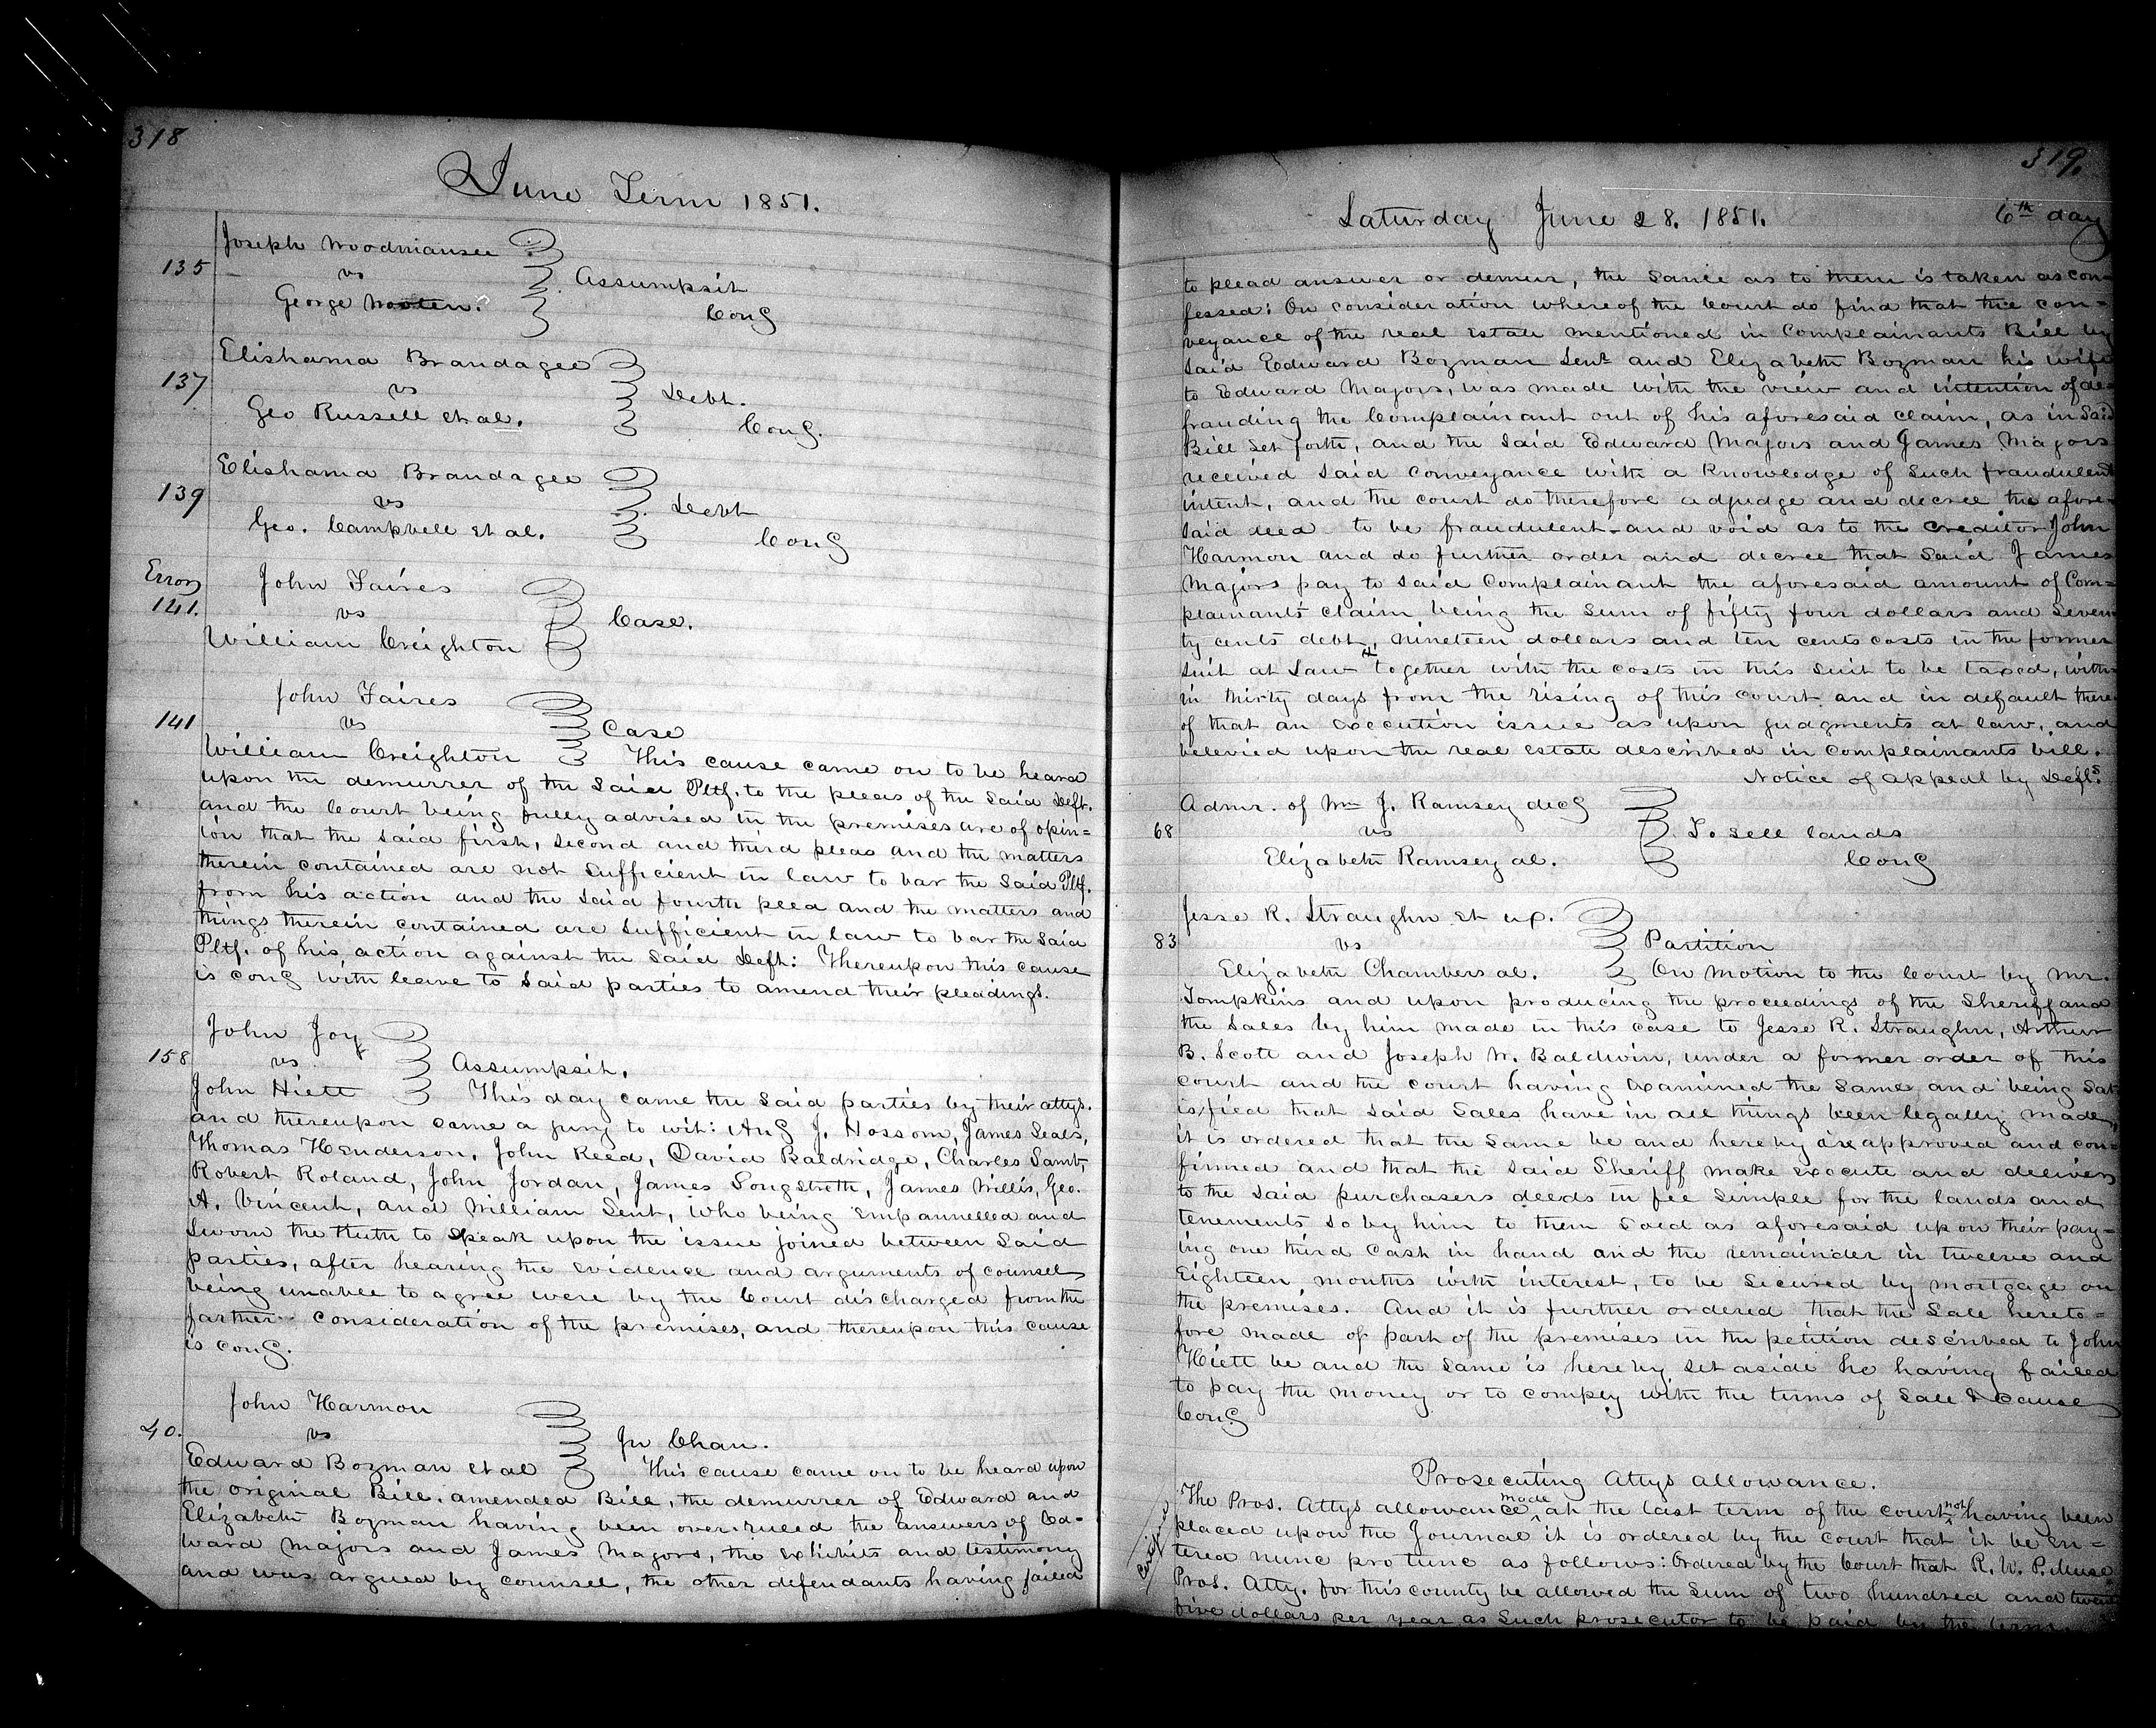 318
June Term 1851.
Joseph Woodmansee
135 vs Assumpsit
George Wooten. Cong
Elishama Brandagee
137 vs Debt.
Geo Russell et al. Cong.
Elishama Brandagee
139 vs Debt
Geo. Campbell et al. Cong
Error John Faires
141. vs Case.
William Creighton
John Faires
141 vs Case
William Creighton This cause came on to be heard
upon the demurrer of the said Pltf. to the pleas of the said Deft.
and the Court being fully advised in the premises are of opin=
ion that the said first, second and third pleas and the matters
therein contained are not sufficient in law to bar the said Pltf.
from his action and the said fourth plea and the matters and
things therein contained are sufficient in law to bar the said
Pltf. of his action against the said Deft: Thereupon this cause
is cong with leave to said parties to amend their pleadings.
John Joy
158 vs Assumpsit.
John Hiett This day came the said parties by their attys.
and thereupon came a jury to wit: Aug J. Hossom, James Seals,
Thomas Henderson, John Reed, David Baldridge, Charles Lamb,
Robert Roland, John Jordan, James Longstreth, James Willis, Geo.
A. Vincent, and William Lent, who being empannelled and
sworn the truth to speak upon the issue joined between said
parties, after hearing the evidence and arguments of counsel
being unable to agree were by the Court discharged from the
farther consideration of the premises, and thereupon this cause
is cong.
John Harmon
40. vs In Chan.
Edward Bozman et al This cause came on to be heard upon
the original Bill, amended Bill, the demurrer of Edward and
Elizabeth Bozman having been over-ruled the answers of Ed=
ward Majors and James Majors, the exhibits and testimony
and was argued by counsel, the other defendants having failed
319.
Saturday June 28. 1851. 6th day
to plead answer or demur, the same as to them is taken as con=
fessed: On consideration whereof the Court do find that the con=
veyance of the real estate mentioned in Complainants Bill by
said Eedward Bozman Senr and Elizabeth Bozman his wife
to Edward Majors, was made with the view and intention of de=
frauding the Complainant out of his aforesaid claim, as in said
Bill set forth, and the said Edward Majors and James Majors
received said conveyance with a knowledge of such fraudulent
intent, and the court do therefore adjudge and decree the afore=
said deed to be fraudulent and void as to the creditor John
Harmon and do further order and decree that said James
Majors pay to said Complainant the aforesaid amount of Com=
plainants claim being the sum of fifty four dollars and seven=
ty cents debt, nineteen dollars and ten cents costs in the former
suit at Law together with the costs in this suit to be taxed, with=
in thirty days from the rising of this court and in default there=
of that an execution issue as upon judgments at law, and
belevied upon the real estate described in complainants bill.
Notice of appeal by Defts.
Admr. of Wm J. Ramsey decd
68 vs To sell lands
Elizabeth Ramsey al. Cong
Jesse R. Straughn et ux.
83 vs Partition
Elizabeth Chambers al. On motion to the Court by Mr.
Tompkins and upon producing the proceedings of the Sheriff and
the sales by him made in this case to Jesse R. Straughn, Arthur
B. Scott and Joseph W. Baldwin, under a former order of this
court and the court having examined the same and being sat
isfied that said sales have in all things been legally made,
it is ordered that the same be and hereby are approved and con=
firmed and that the said Sheriff make execute and deliver
to the said purchasers deeds in fee simple for the lands and
tenements so by him to them sold as aforesaid upon their pay=
ing one third cash in hand and the remainder in twelve and
Eighteen months with interest, to be secured by mortgage on
the premises. And it is further ordered that the sale hereto=
fore made of part of the premises in the petition described to John
Hiett be and the same is hereby set aside he having failed
to pay the money or to comply with the terms of sale & Cause
Cong
Prosecuting Attys allowance.
The Pros. Attys allowance made at the last term of the court not having been
placed upon the Journal it is ordered by the court that it be en=
tered nunc pro tunc as follows: Ordered by the Court that R. W. P. Muse
Pros. Atty. for this county be allowed the sum of two hundred and twenty
five dollars per year as such prosecutor to be paid by the term.